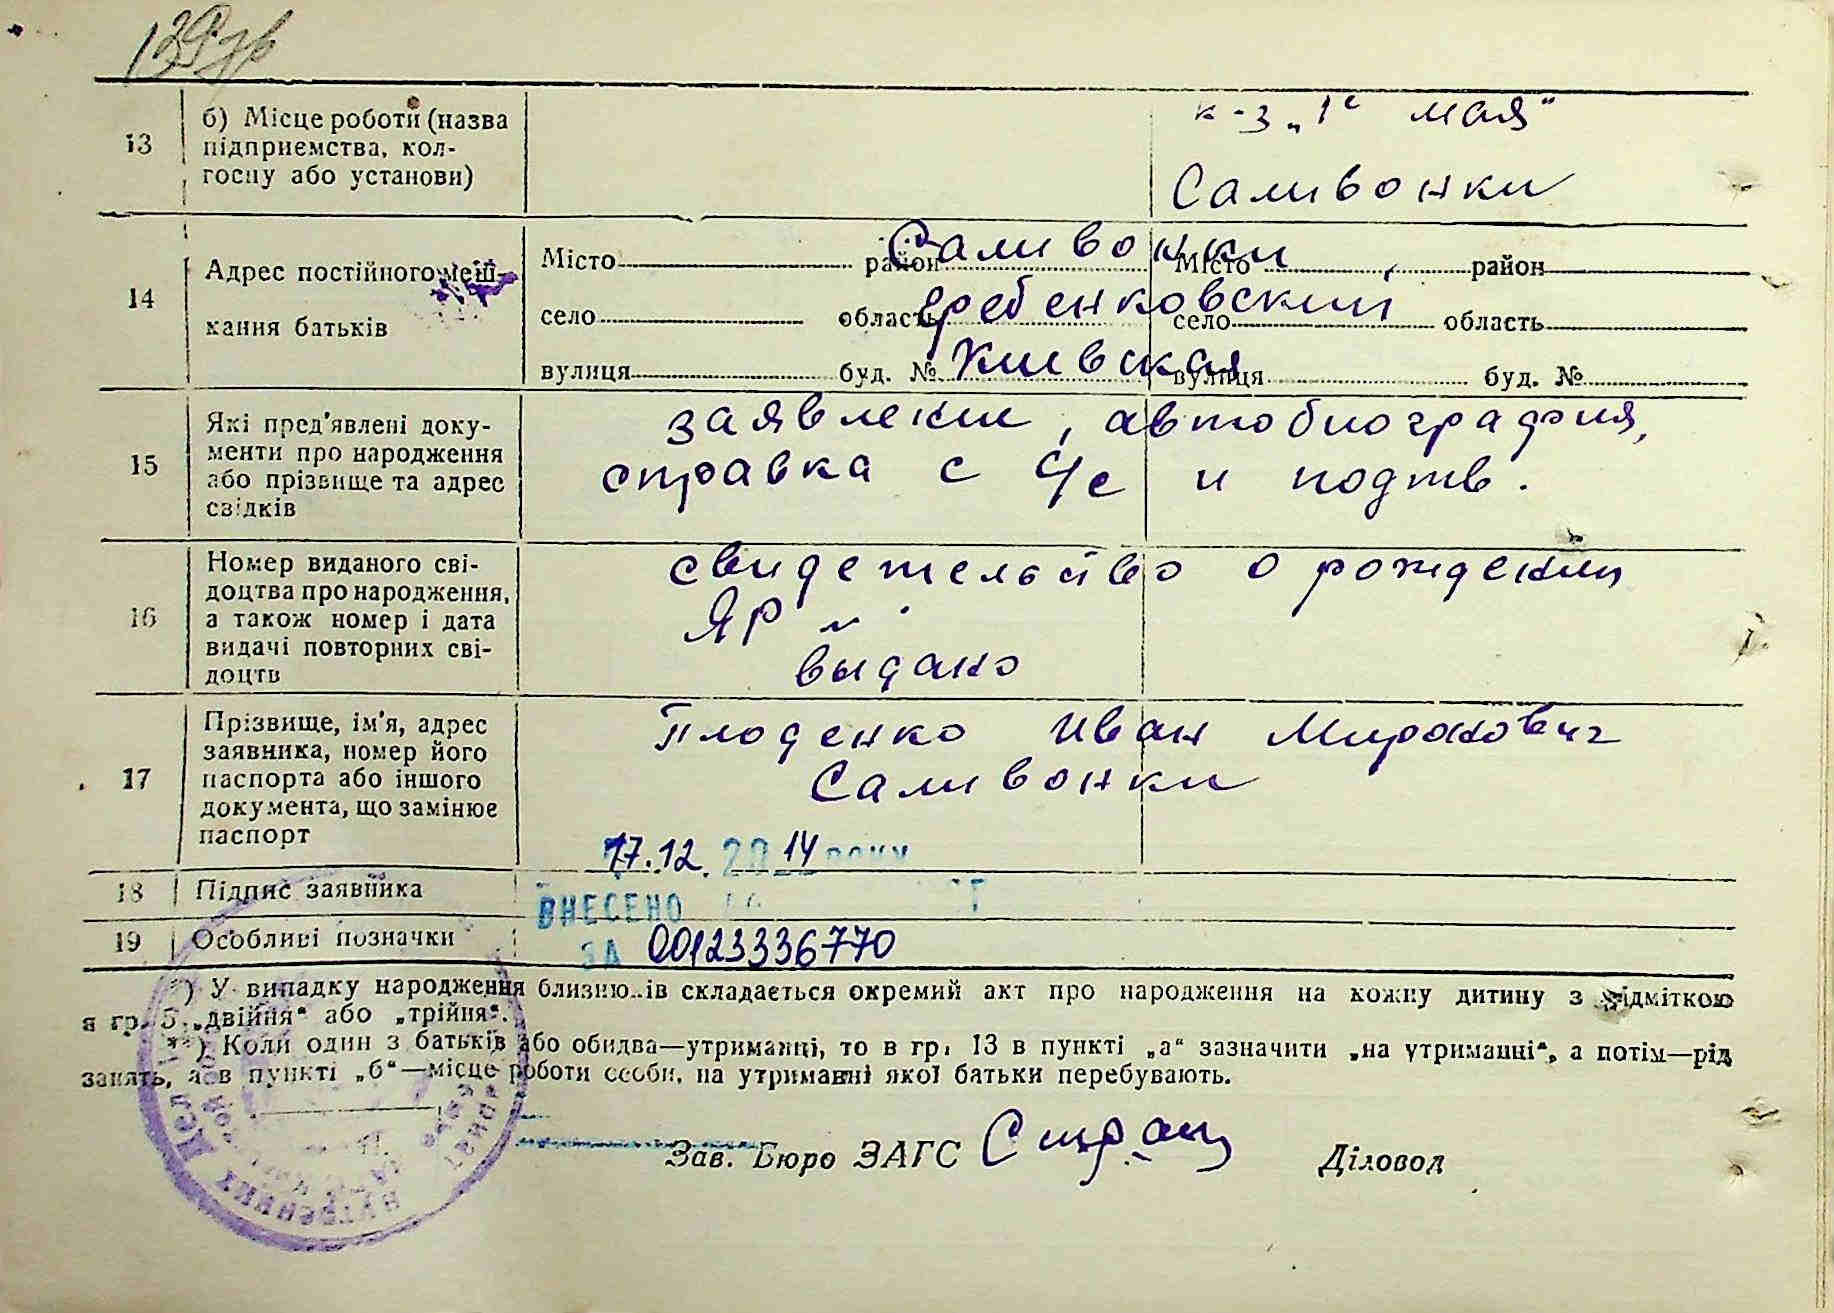 139зв
13
б) Місце роботи (назва
підприємства, кол-
госпу або установи)
к-з „1е мая"
Саливонки
14
Адрес постійного меш-
кання батьків
Місто район
село область
вулиця буд. №
Місто район
село область
вулиця буд. №
Саливонки
Гребенковский
Киевская
15
Які пред'явлені доку-
менти про народження
або прізвище та адрес
свідків
заявлении, автобиография,
справка с с/с и подтв.
16
Номер виданого сві-
доцтва про народження,
а також номер і дата
видачі повторних сві-
доцтв
свидетельство о рождении
ЯР
выдано
17
Прізвище, ім'я, адрес
заявника, номер його
паспорта або іншого
документа, що замінює
паспорт
Плоденко Иван Миронович
Саливонки
17.12. 2014 року
18
Підпис заявника
ВНЕСЕНО
19
Особливі позначки
ЗА 00123336770
*) У випадку народження близнюків складається окремий акт про народження на кожну дитину з відміткою
я гр. 5 „двійня" або „трійня".
**) Коли один з батьків або обидва—утриманці, то в гр. 13 в пункті „а" зазначити „на утриманні", а потім—рід
занять, а в пункті „б"—місце роботи особи, на утриманні якої батьки перебувають.
Зав. Бюро ЗАГС
Діловод